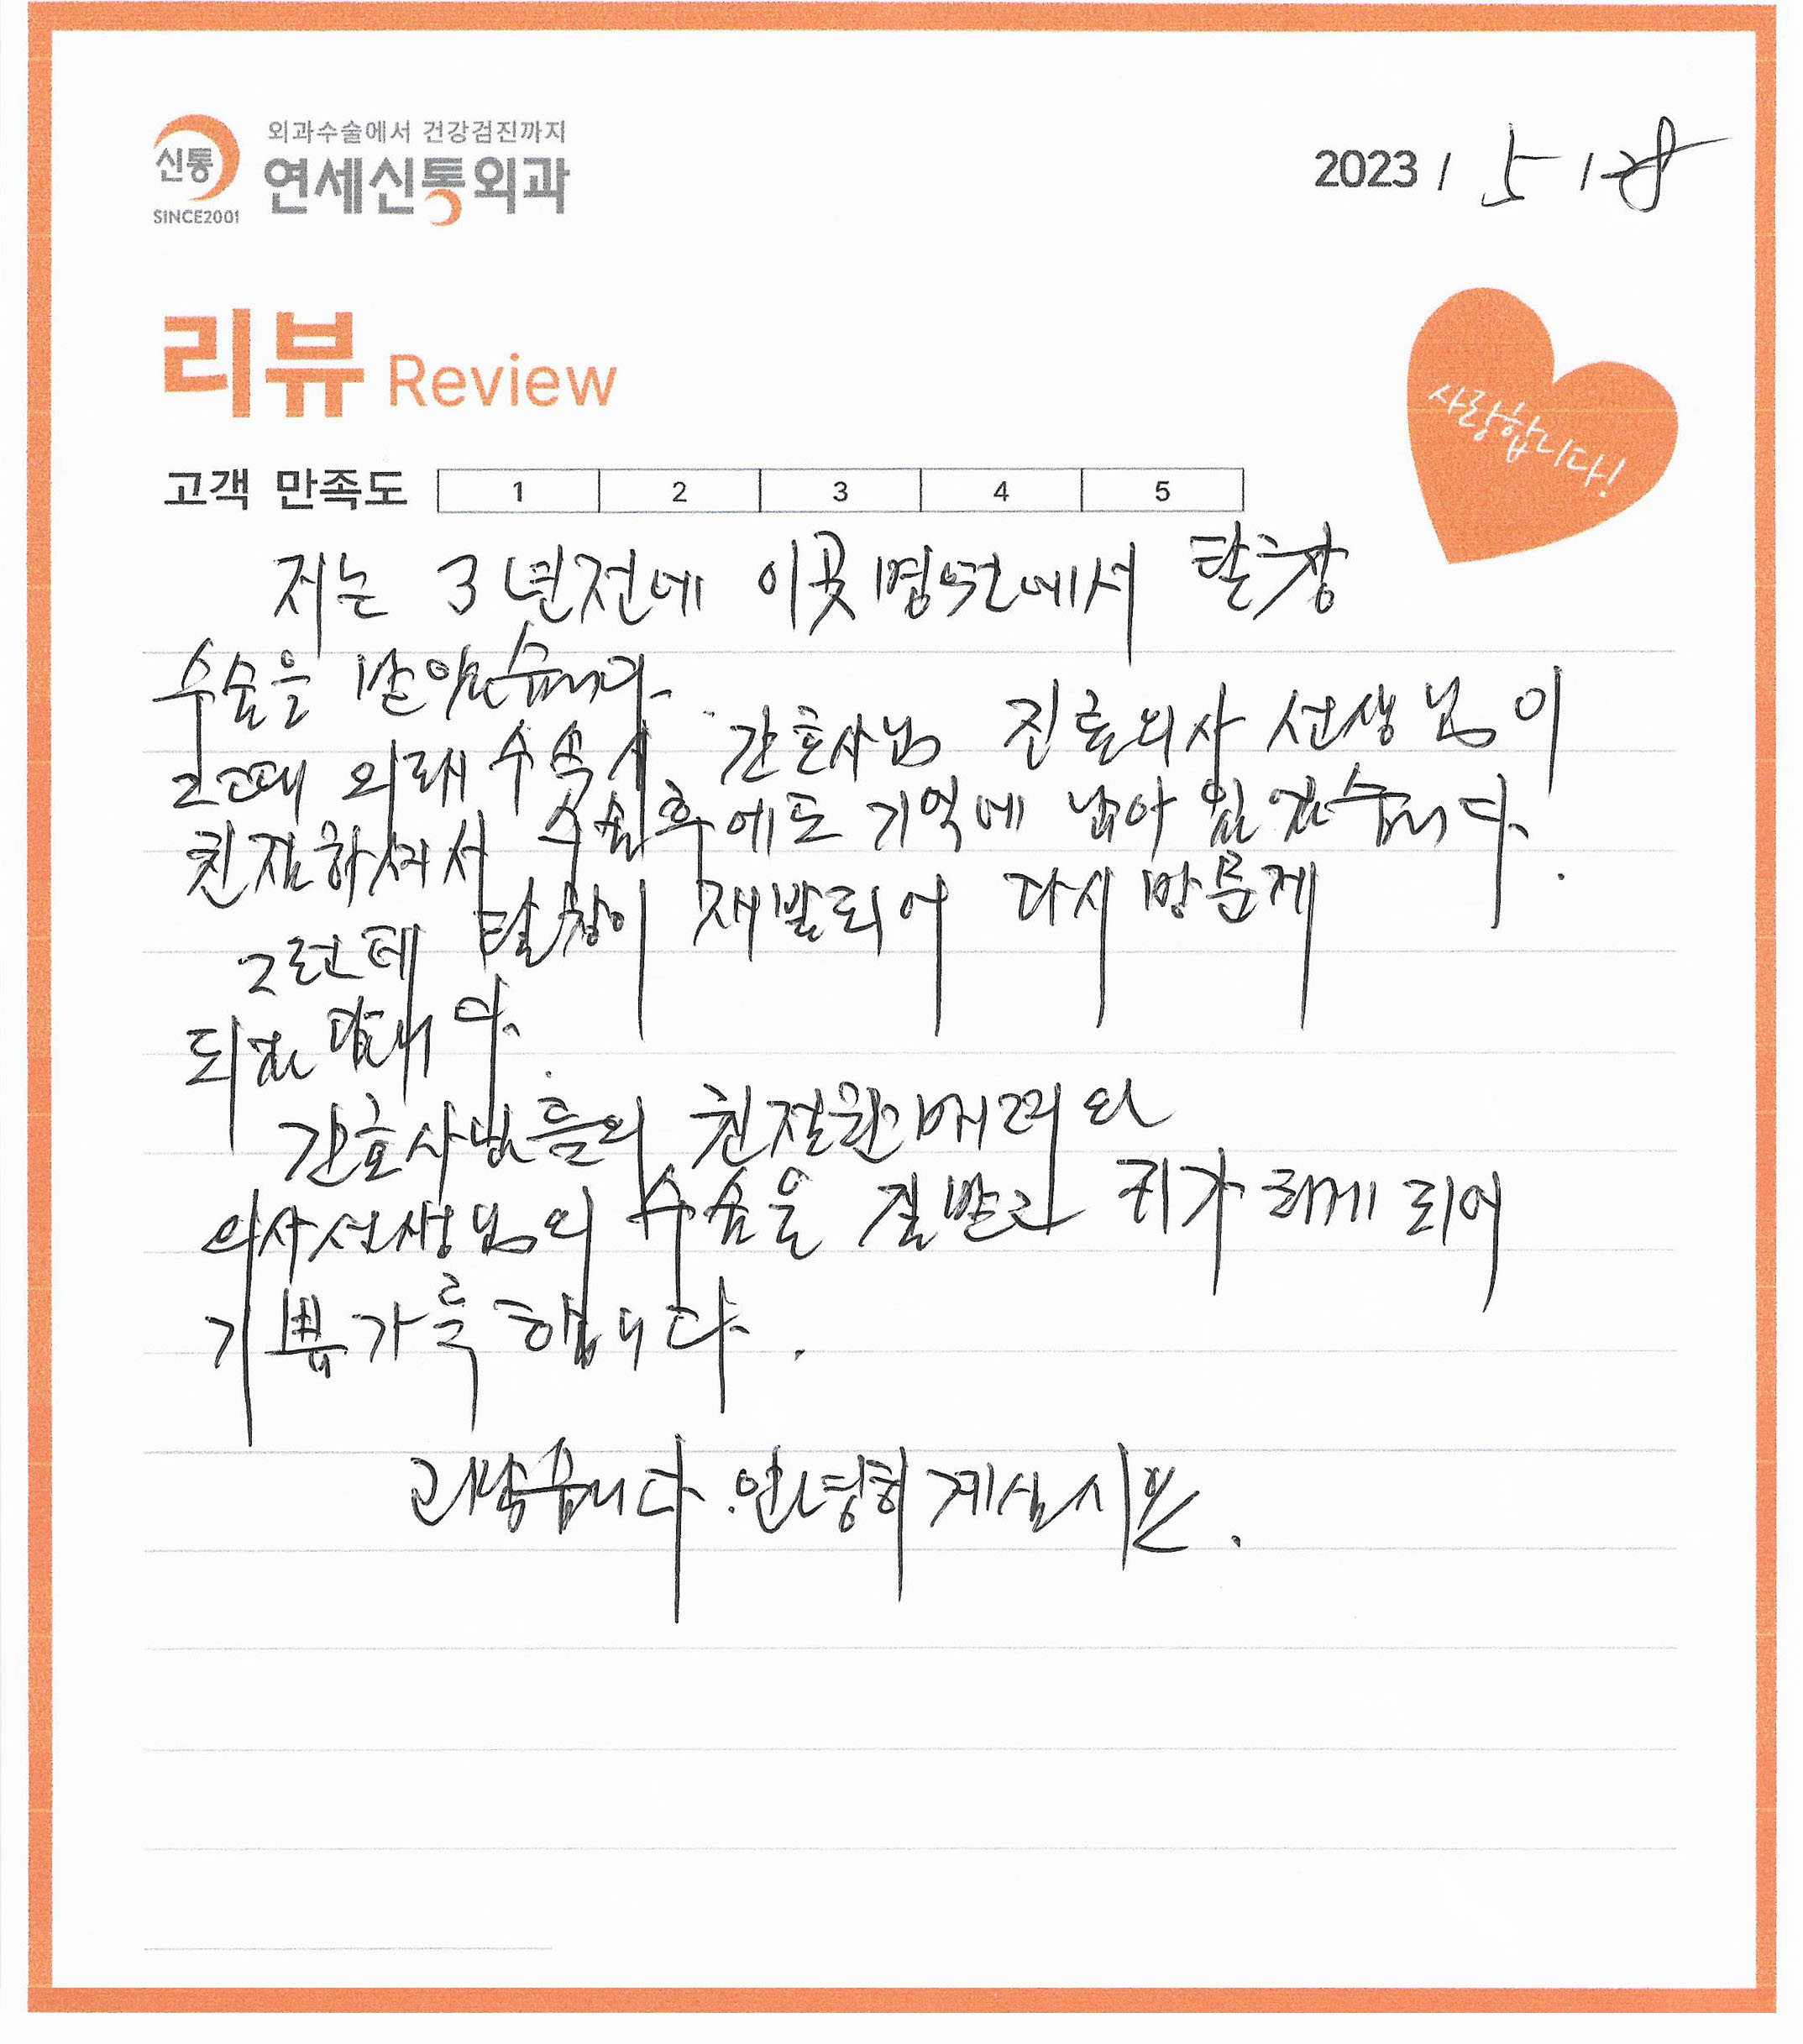 외과수술에서 건강검진까지
신통 연세신통외과
SINCE2001
2023 / 5 / 8
리뷰 Review
사랑합니다!
고객 만족도 1 2 3 4 5
저는 3년전에 이곳 병원에서 탈장
수술을 받았습니다.
그때 외래 수속시 간호사님 진료의사 선생님이
친절하셔서 수술후에도 기억에 남아 있었습니다.
그런데 탈장이 재발되어 다시 방문게
되었답니다.
간호사님들의 친절한 배려와
의사선생님의 수술을 잘받고 귀가 하게 되어
기쁨가득 합니다.
고맙습니다. 안녕히 계십시요.